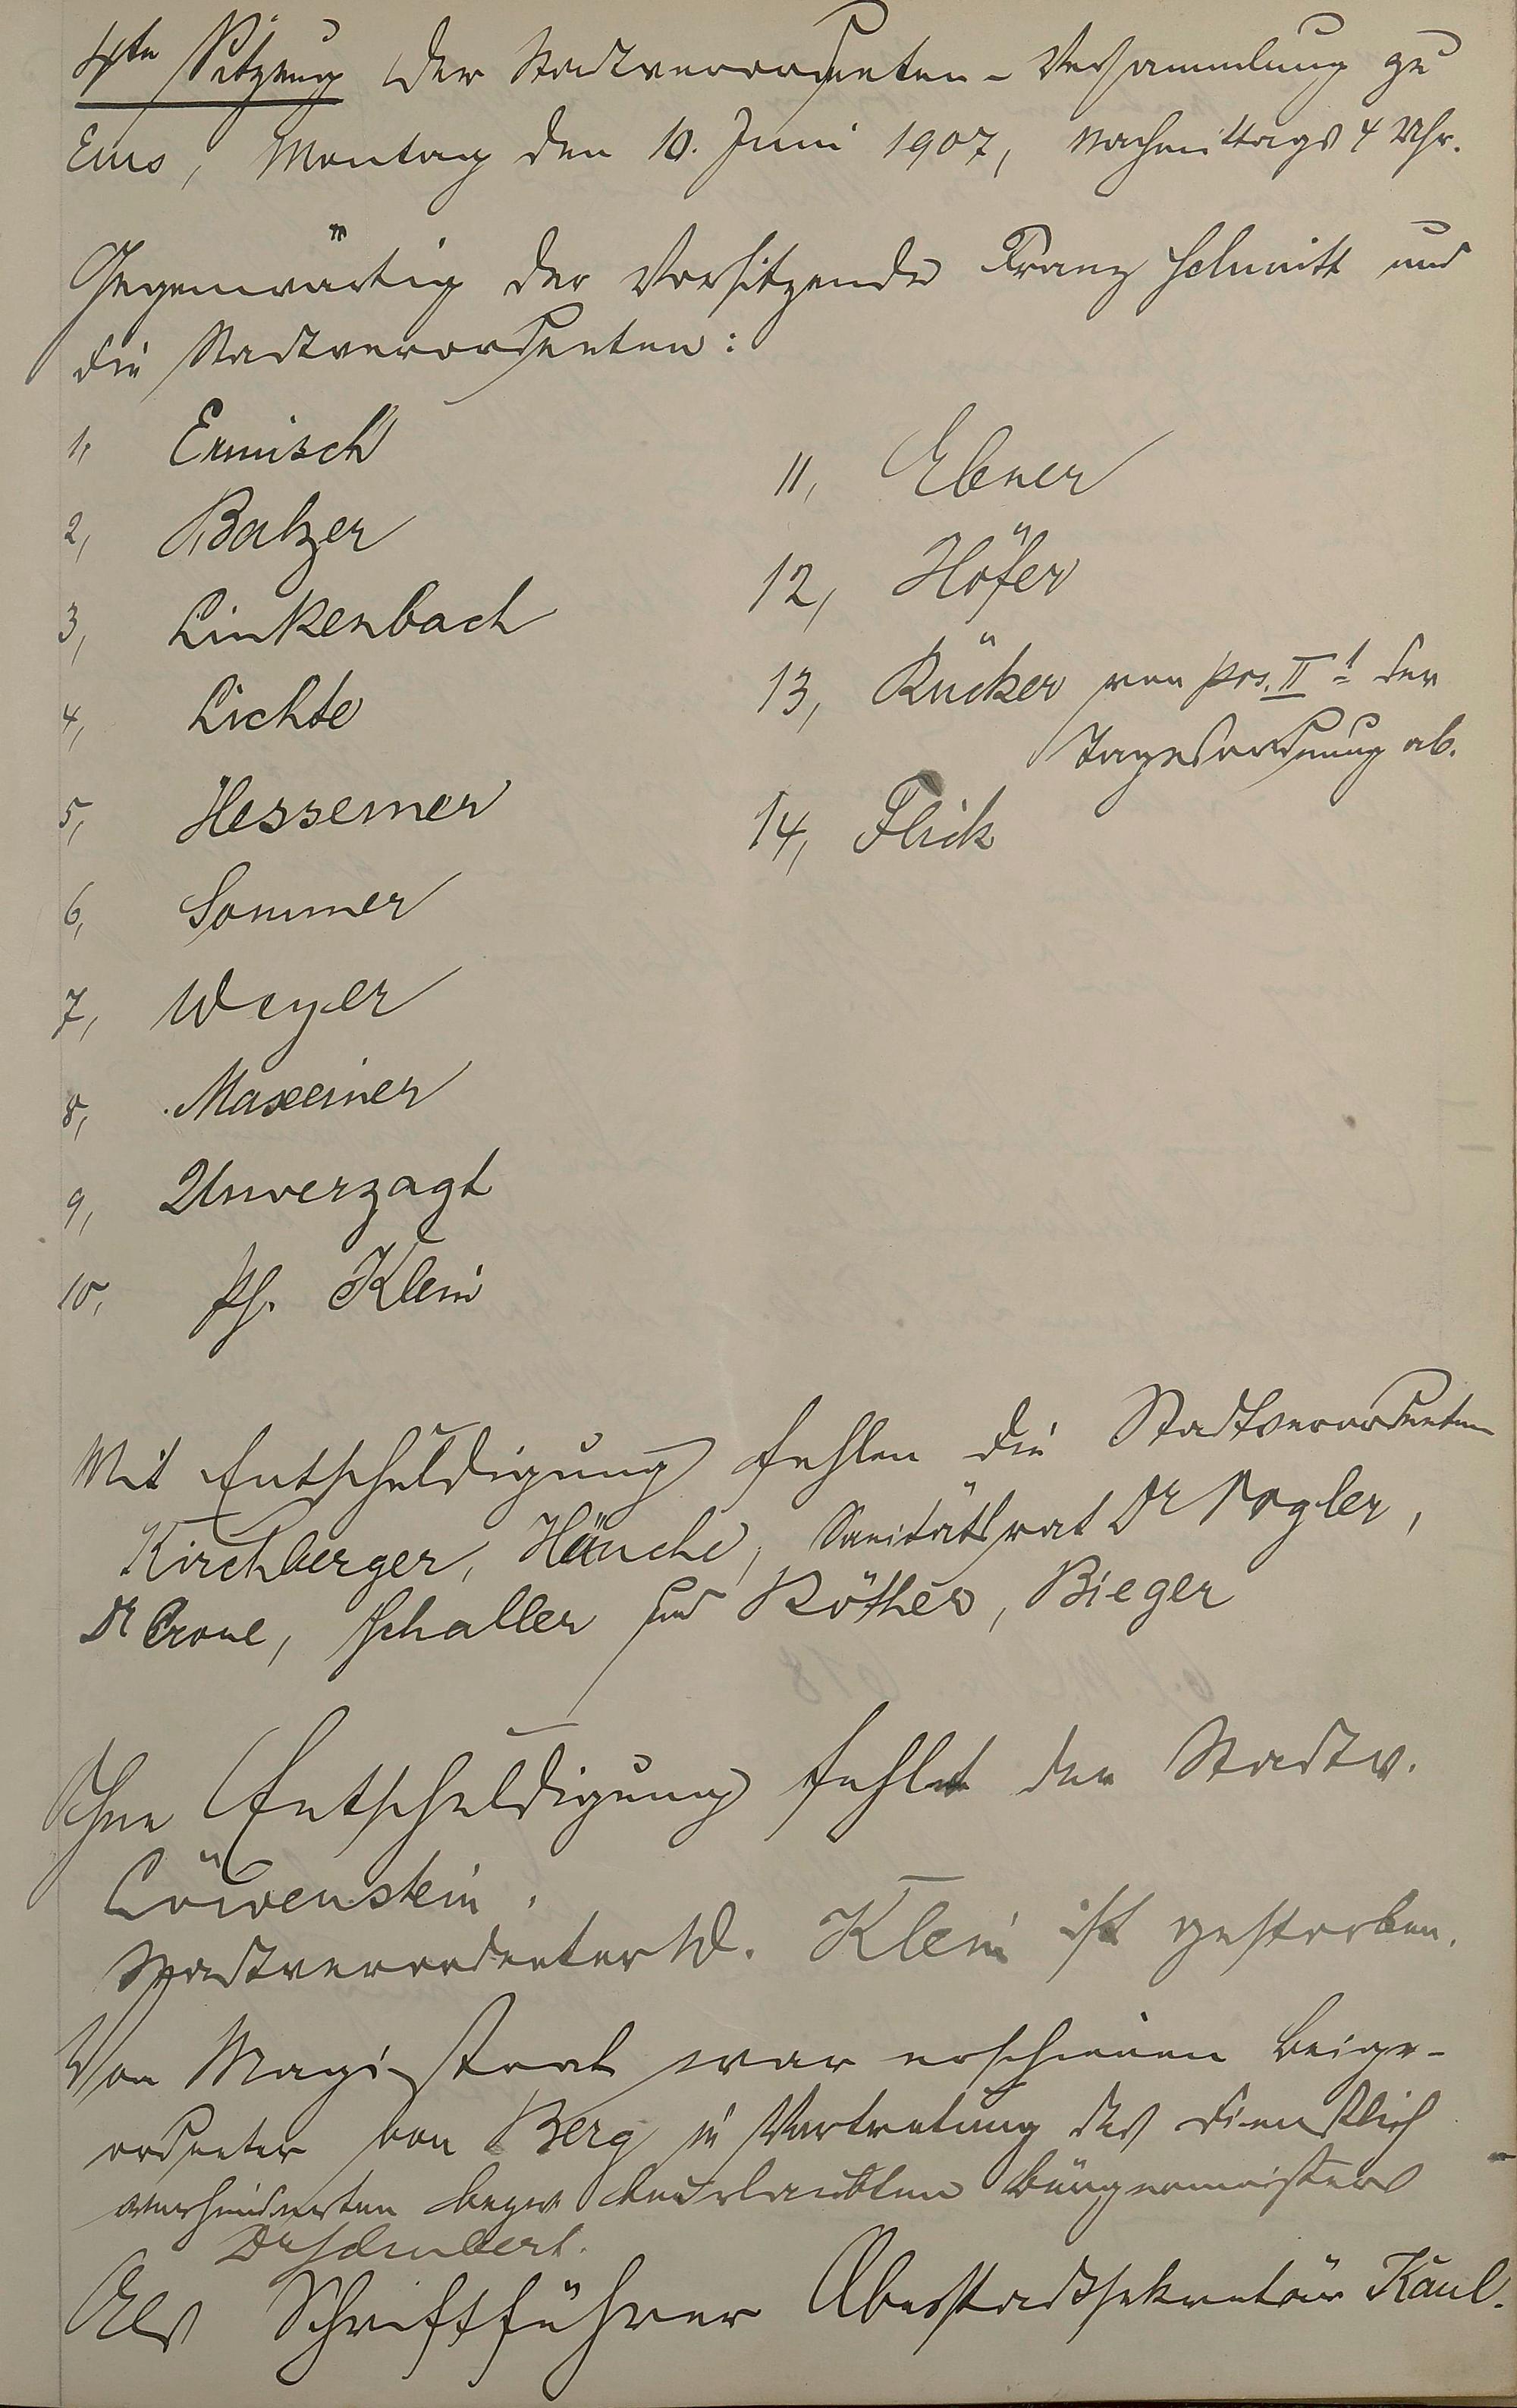 4te Sitzung der Stadtverordneten-Versammlung zu
Ems, Montag den 10. Juni 1907, Nachmittags 4 Uhr.
Gegenwärtig der Vorsitzende Franz Schmitt und
die Stadtverordneten:
1, Ermisch
2, Balzer
3, Linkenbach
4, Lichte
5, Hessemer
6, Sommer
7, Weyer
8, Maxeiner
9, Unverzagt
10, Ph. Klein
11, Ebner
12, Höfer
13, Rücker von pos. II 1 der
Tagesordnung ab.
14, Flick
Mit Entschuldigung fehlen die Stadtverordneten
Kirchberger, Hänche, Sanitätsrat Dr Vogler,
Dr Crone, Schaller und Röther, Bieger
Ohne Entschuldigung fehlt der Stadtv.
Löwenstein.
Stadtverordneter W. Klein ist gestorben.
Von Magistrat war erschienen Beige-
ordneter von Berg in Vertretung des dienstlich
verhinderten bezw beurlaubten Bürgermeisters
Dr Schubert.
Als Schriftführer Oberstadtsekretär Kaul.